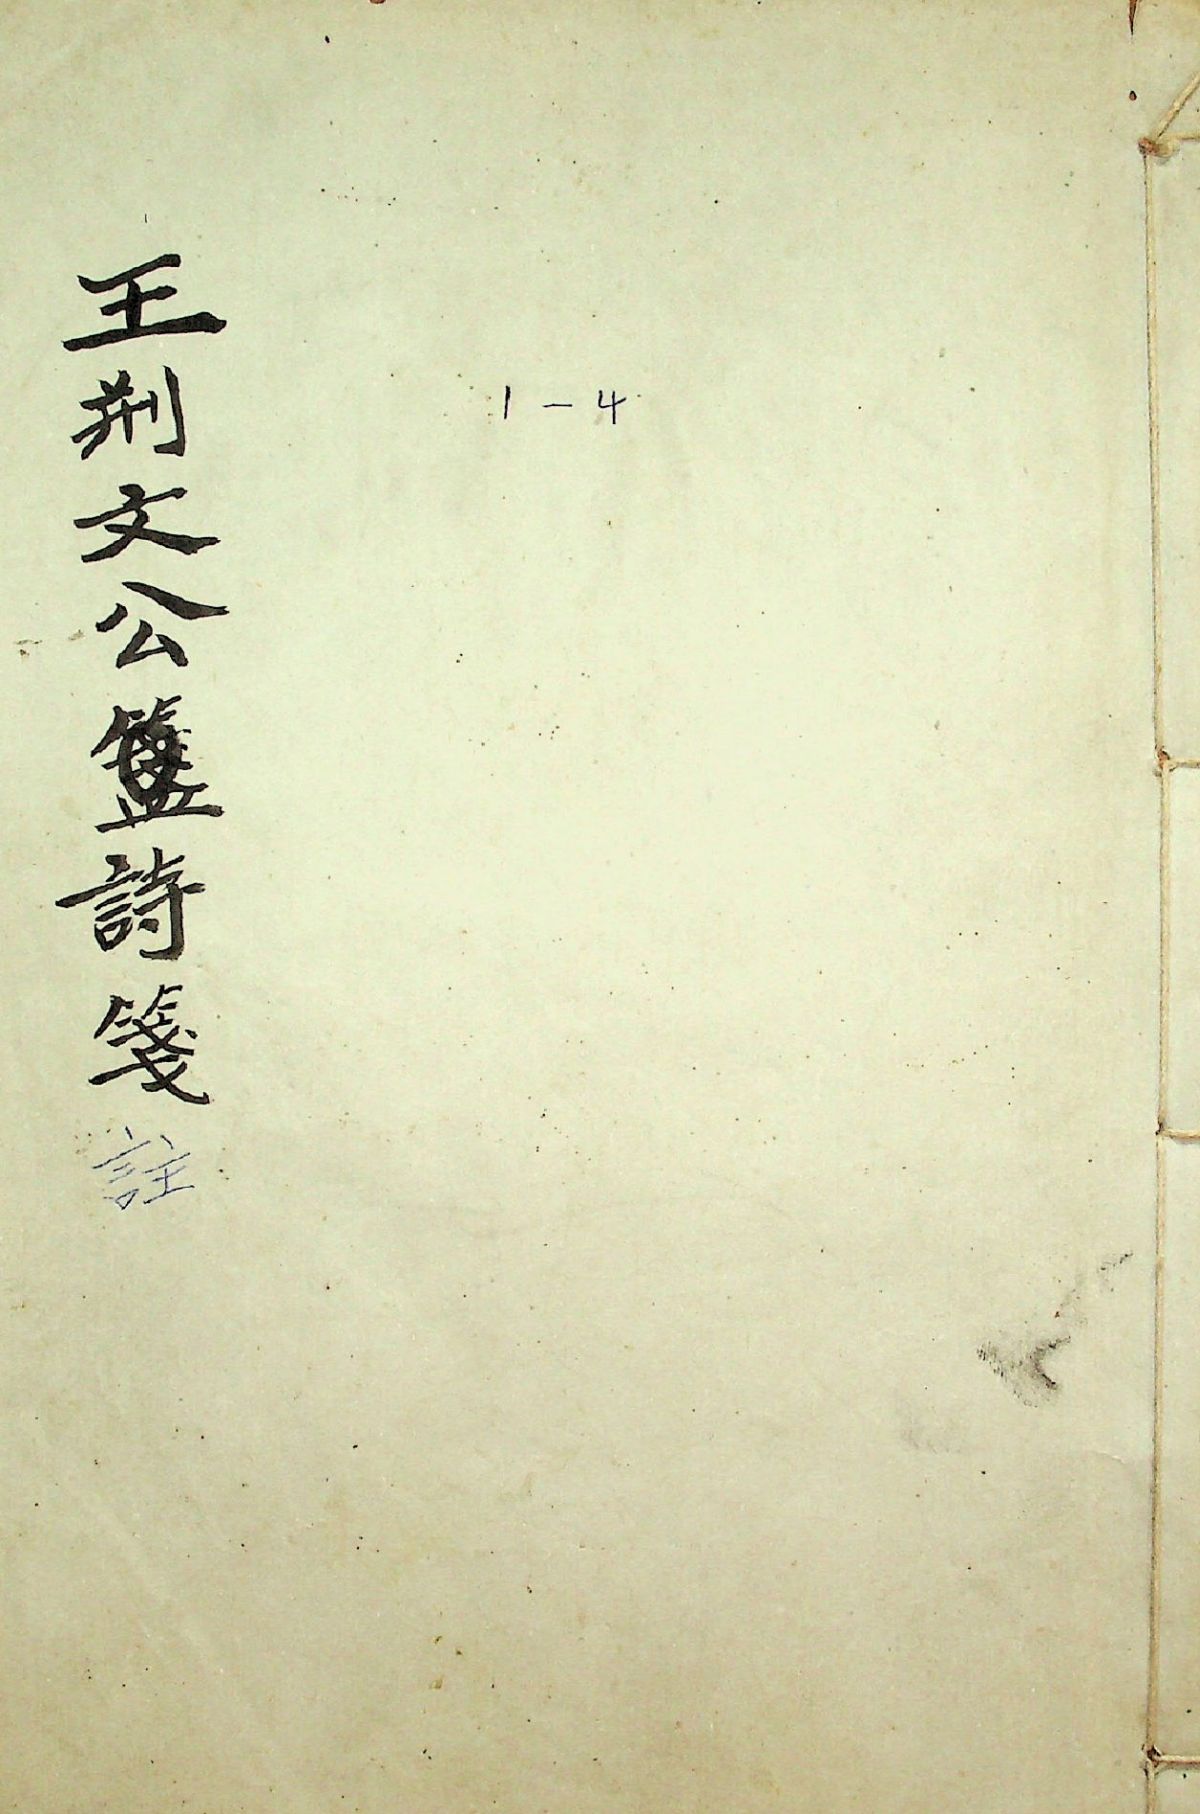 王荆文公詩箋註
1-4